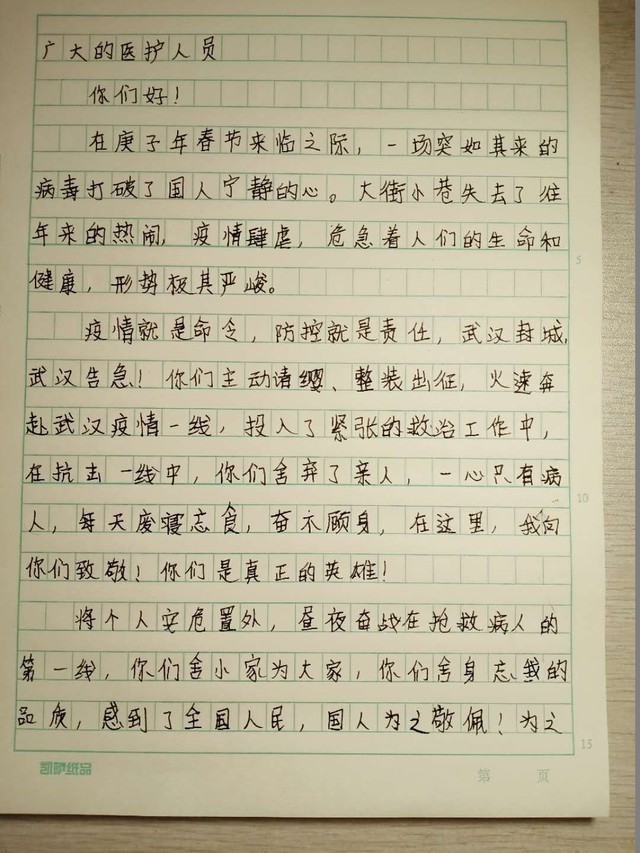 广大的医护人员
你们好！
在庚子年春节来临之际，一场突如其来的
病毒打破了国人宁静的心。大街小巷失去了往
年来的热闹，疫情肆虐，危急着人们的生命和
健康，形势极其严峻。
疫情就是命令，防控就是责任，武汉封城，
武汉告急！你们主动请缨、整装出征，火速奔
赴武汉疫情一线，投入了紧张的救治工作中，
在抗击一线中，你们舍弃了亲人，一心只有病
人，每天废寝忘食，奋不顾身，在这里，我向
你们致敬！你们是真正的英雄！
将个人安危置外，昼夜奋战在抢救病人的
第一线，你们舍小家为大家，你们舍身忘我的
品质，感到了全国人民，国人为之敬佩！为之
5
10
15
凯萨纸品
第 页